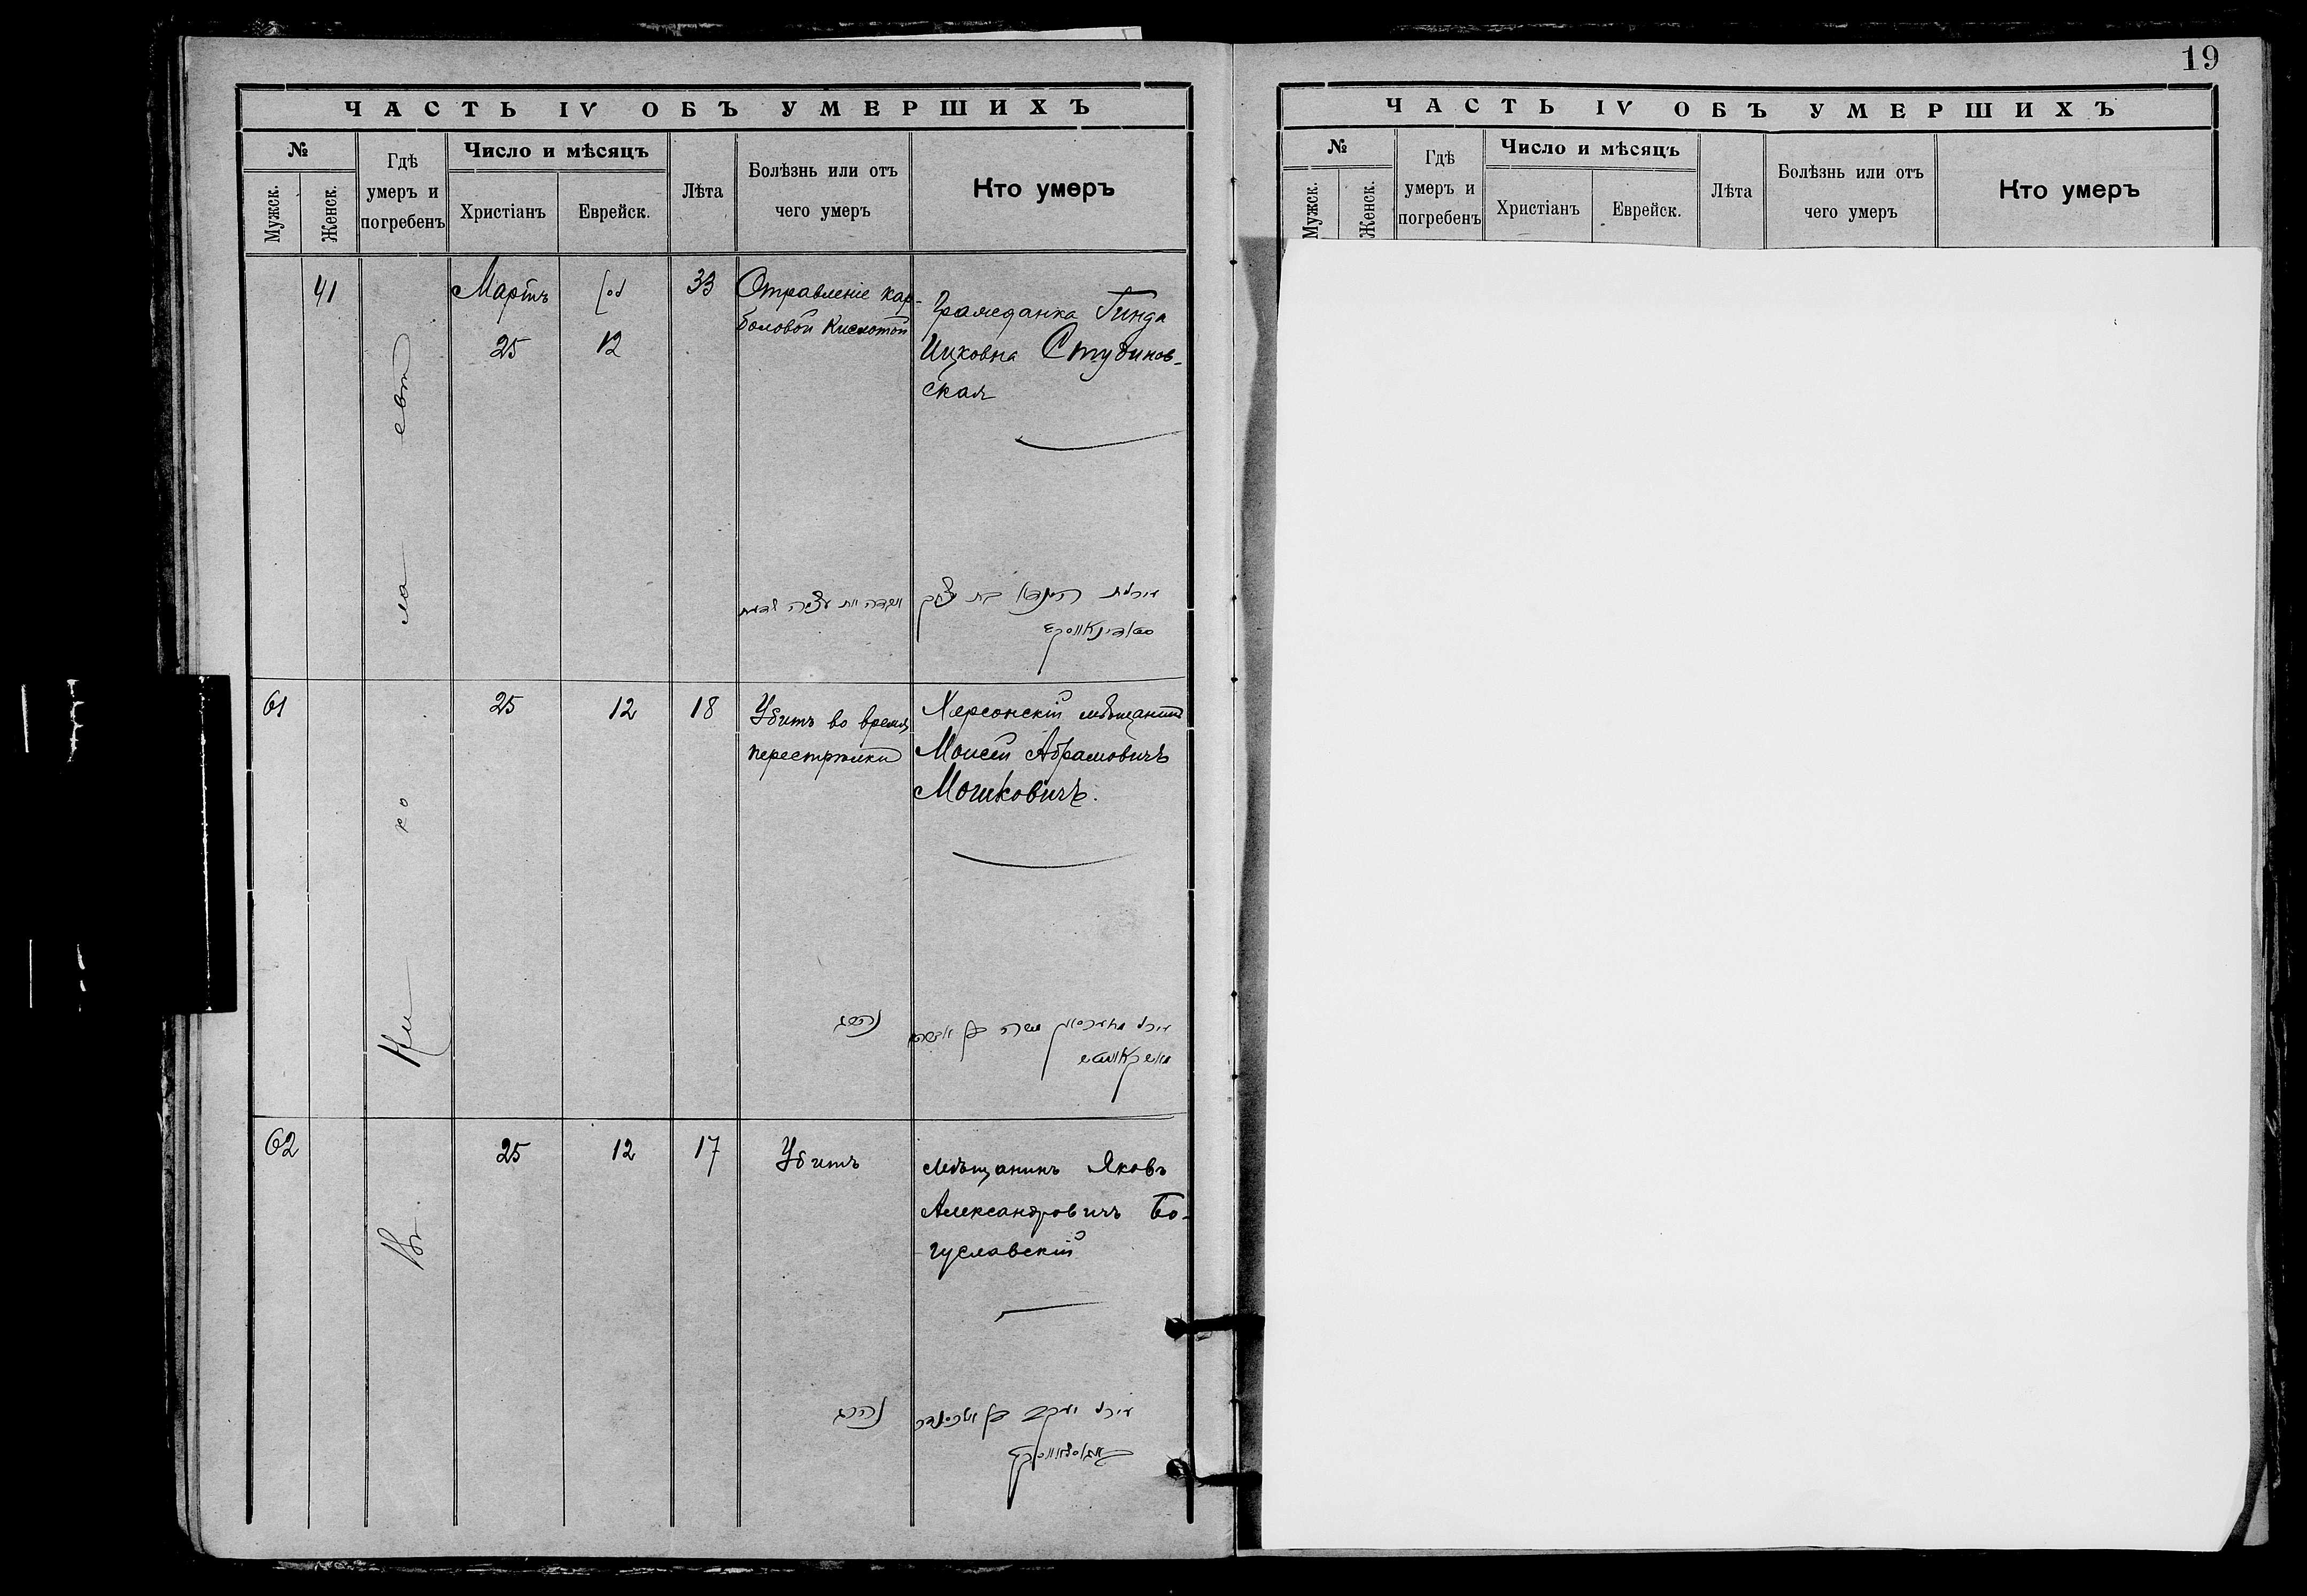 ЧАСТЬ IV ОБЪ УМЕРШИХЪ
№
Мужск.
Женск.
Гдѣ
умеръ и
погребенъ
Число и мѣсяцъ
Христіанъ
Еврейск.
Лѣта
Болѣзнь или отъ
чего умеръ
Кто умеръ
41
Мартъ
25
12
33
Отравленіе кар-
боловой кислотой
Гражданка Гинда
Ицковна Студинов-
ская
61
25
12
18
Убитъ во время
перестрѣлки
Херсонскій мѣщанинъ
Моисей Абрамовичъ
Мошковичъ.
62
25
12
17
Убитъ
Мѣщанинъ Яковъ
Александровичъ Бо-
гуславскій
Въ Ни ко ла евѣ
19
ЧАСТЬ IV ОБЪ УМЕРШИХЪ
№
Мужск.
Женск.
Гдѣ
умеръ и
погребенъ
Число и мѣсяцъ
Христіанъ
Еврейск.
Лѣта
Болѣзнь или отъ
чего умеръ
Кто умеръ